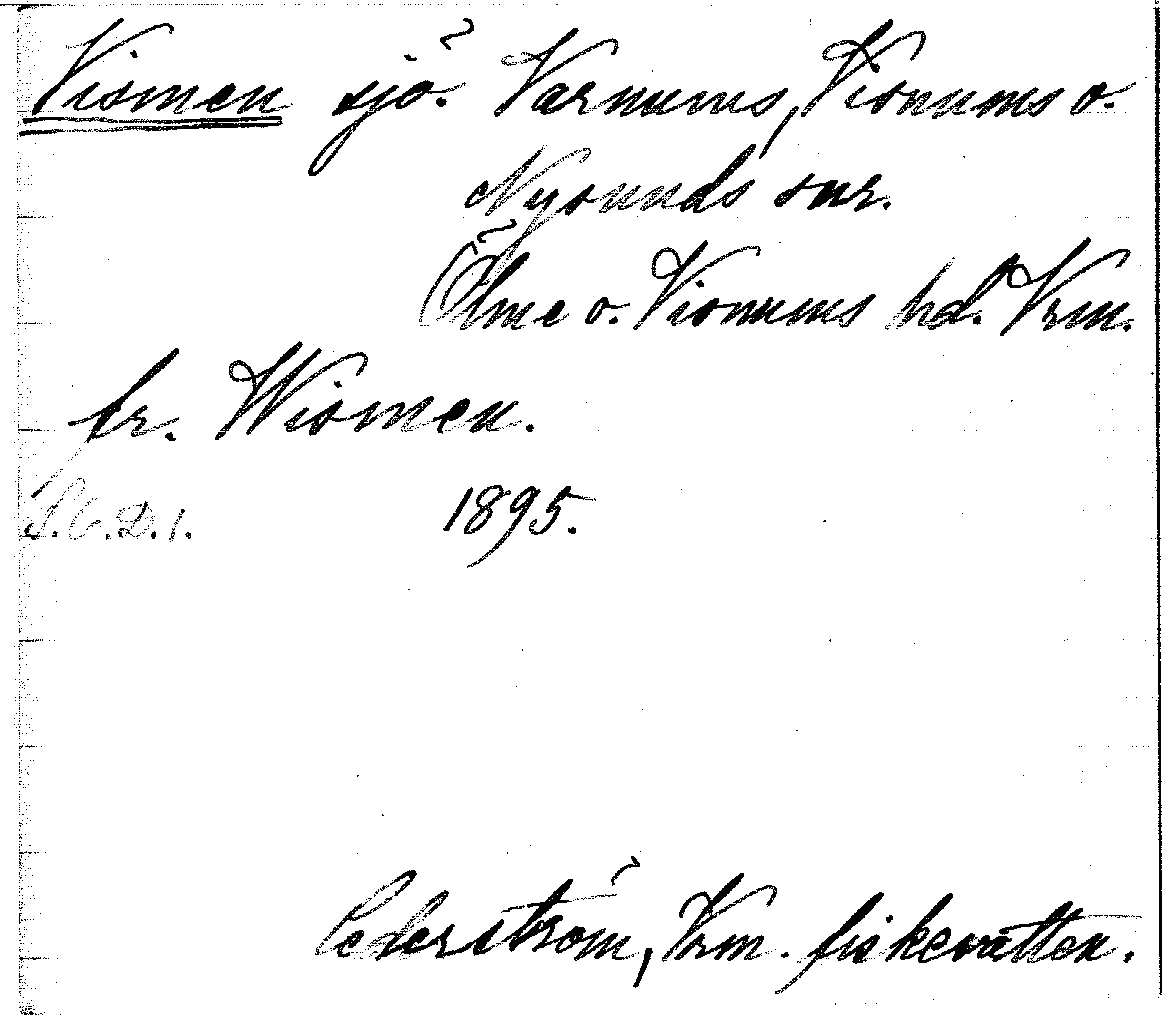 Vismen sjö. Varnums, Visnums o.
Nysunds snr.
Ölme o. Visnums hd. Vrm.
fr. Wismen.
1895.
Cederström, Vrm. fiskevatten.